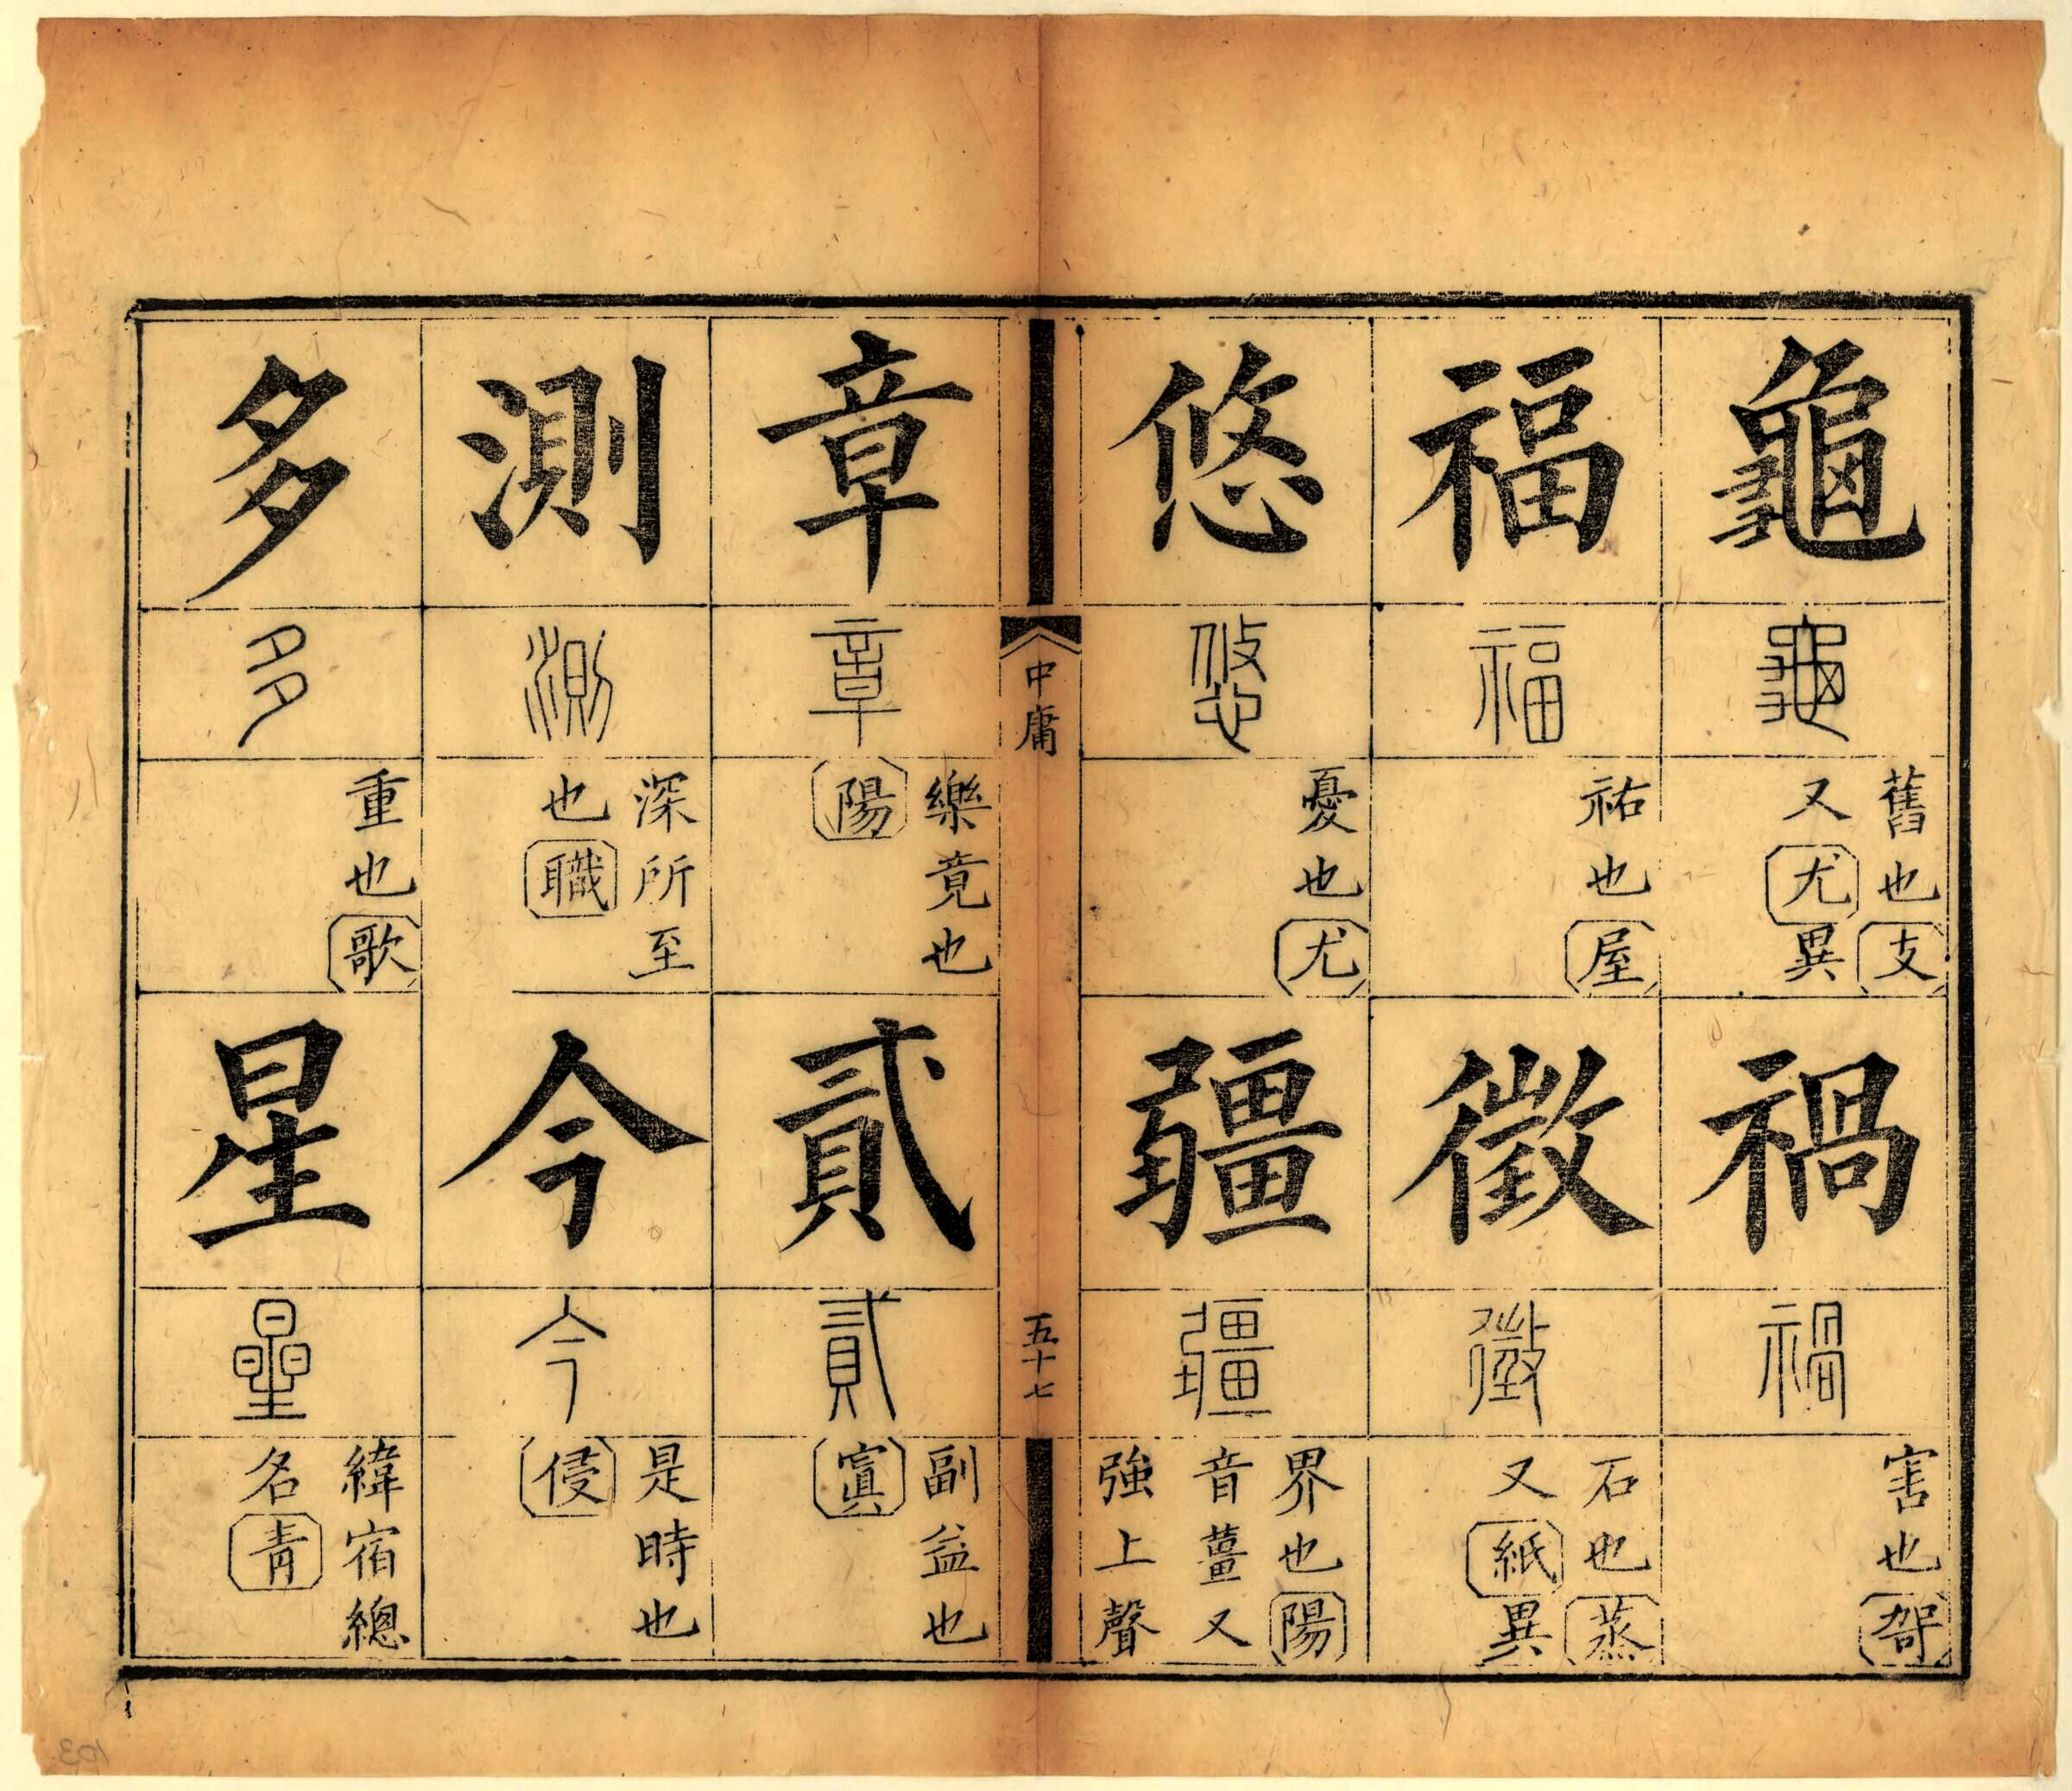 龜
龜
舊也支
又尤異
禍
禍
害也哿
福
福
祐也屋
徵
徵
石也蒸
又紙異
悠
悠
憂也尤
疆
疆
界也陽
音薑又
強上聲
中庸
五十七
章
章
樂竟也
陽
貳
貳
副益也
寘
測
測
深所至
也職
今
今
是時也
侵
多
多
重也歌
星
曐
緯宿總
名青
103